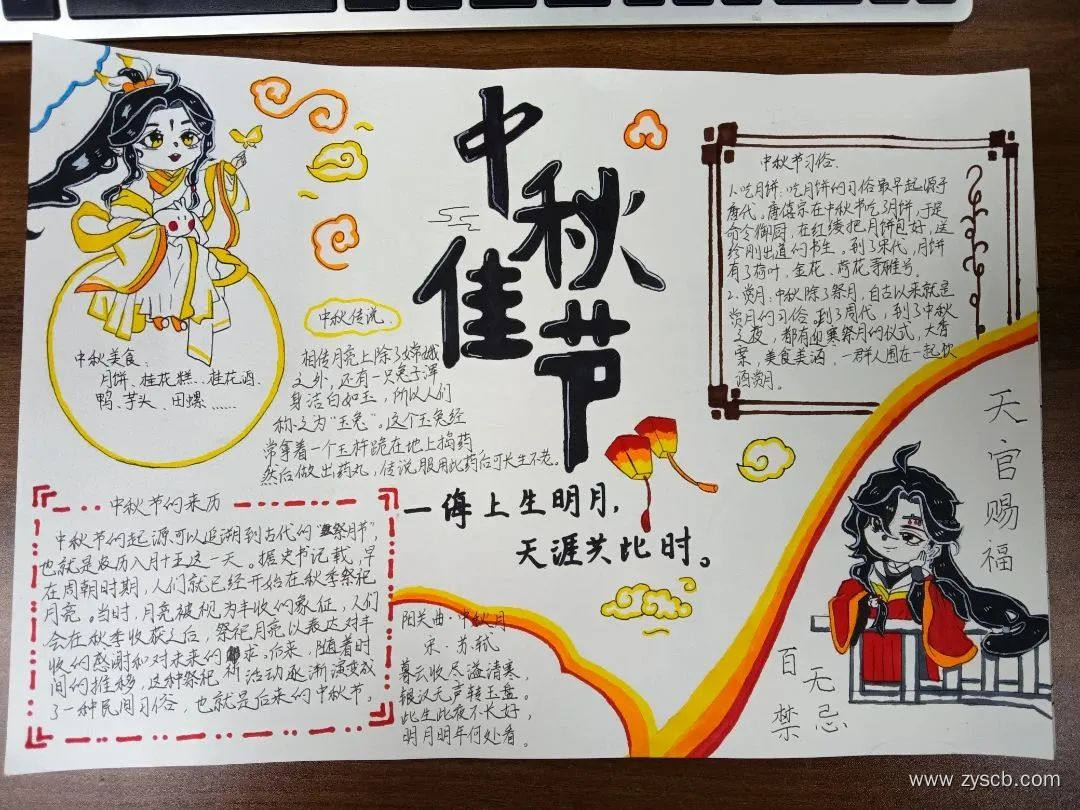 中秋佳节
中秋美食:
月饼、桂花糕、桂花酒、
鸭、芋头、田螺……
中秋传说
相传月亮上除了嫦娥
之外,还有一只兔子浑
身洁白如玉,所以人们
称之为“玉兔”。这个玉兔经
常拿着一个玉杵跪在地上捣药
然后做出药丸,传说服用此药后可长生不老。
中秋节习俗.
1.吃月饼:吃月饼的习俗最早起源于
唐代。唐僖宗在中秋节吃月饼,于是
命令御厨,在红绫把月饼包好,送
给刚出道的书生。到了宋代,月饼
有了荷叶、金花、荷花等雅号。
2.赏月:中秋除了祭月,自古以来就是
赏月的习俗。到了周代,到了中秋
之夜,都有迎寒祭月的仪式,大香
案,美食美酒,一群人围在一起饮
酒赏月.
一海上生明月,
天涯共此时。
中秋节的来历
中秋节的起源可以追溯到古代的“祭月节”,
也就是农历八月十五这一天。据史书记载,早
在周朝时期,人们就已经开始在秋季祭祀
月亮。当时,月亮被视为丰收的象征,人们
会在秋季收获之后,祭祀月亮以表达对丰
收的感谢和对未来的祈求。后来,随着时
间的推移,这种祭祀活动逐渐演变成
了一种民间习俗,也就是后来的中秋节。
阳关曲·中秋月
宋·苏轼
暮云收尽溢清寒,
银汉无声转玉盘。
此生此夜不长好,
明月明年何处看。
天官赐福
百无禁忌
www.zyscb.com